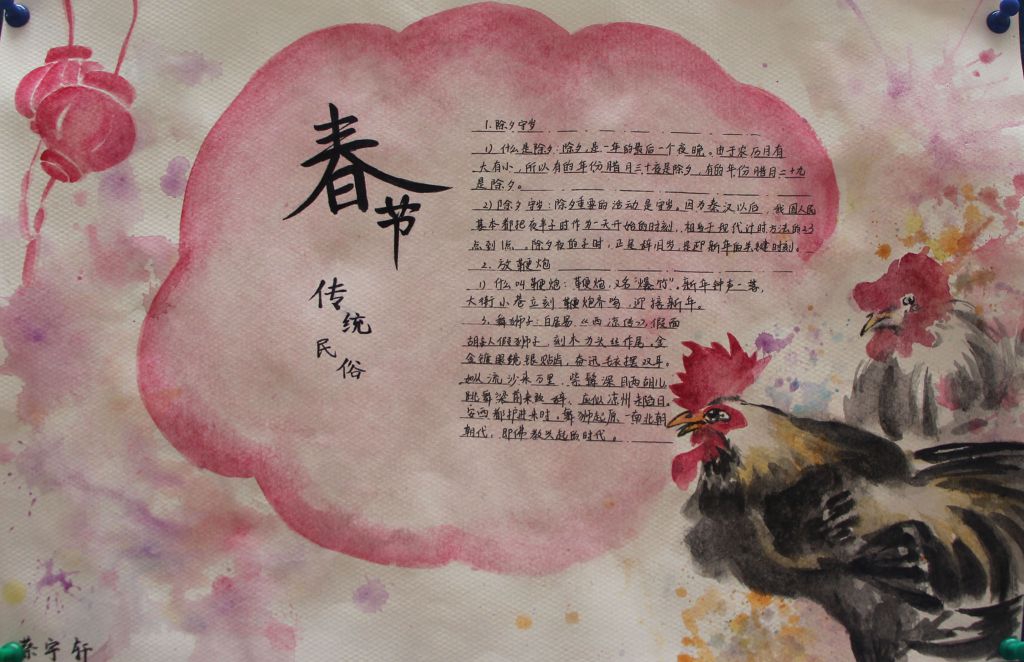 春节
传统民俗
1.除夕守岁
1) 什么是除夕:除夕,是一年的最后一个夜晚。由于农历月有
大有小,所以有的年份腊月三十夜是除夕,有的年份腊月二十九
是除夕。
2) 除夕守岁:除夕重要的活动是守岁。因为秦汉以后,我国人民
基本都把夜半子时作为一天开始的时刻,相当于现代计时方法的23
点到1点。除夕夜的子时,正是辞旧岁,是迎新年的关键时刻。
2.放鞭炮
1) 什么叫鞭炮:鞭炮,又名“爆竹”。新年钟声一落,
大街小巷立刻鞭炮齐鸣,迎接新年。
3.舞狮子:白居易《西凉伎》,假面
胡人假狮子,刻木为头丝作尾。金
金镀眼睛银贴齿,奋迅毛衣摆双耳。
如从流沙来万里,紫髯深目两胡儿,
跳舞梁前来致辞。应似凉州未陷日。
安西都护进来时。舞狮起原南北朝
朝代,即佛教兴起的时代。
宇轩